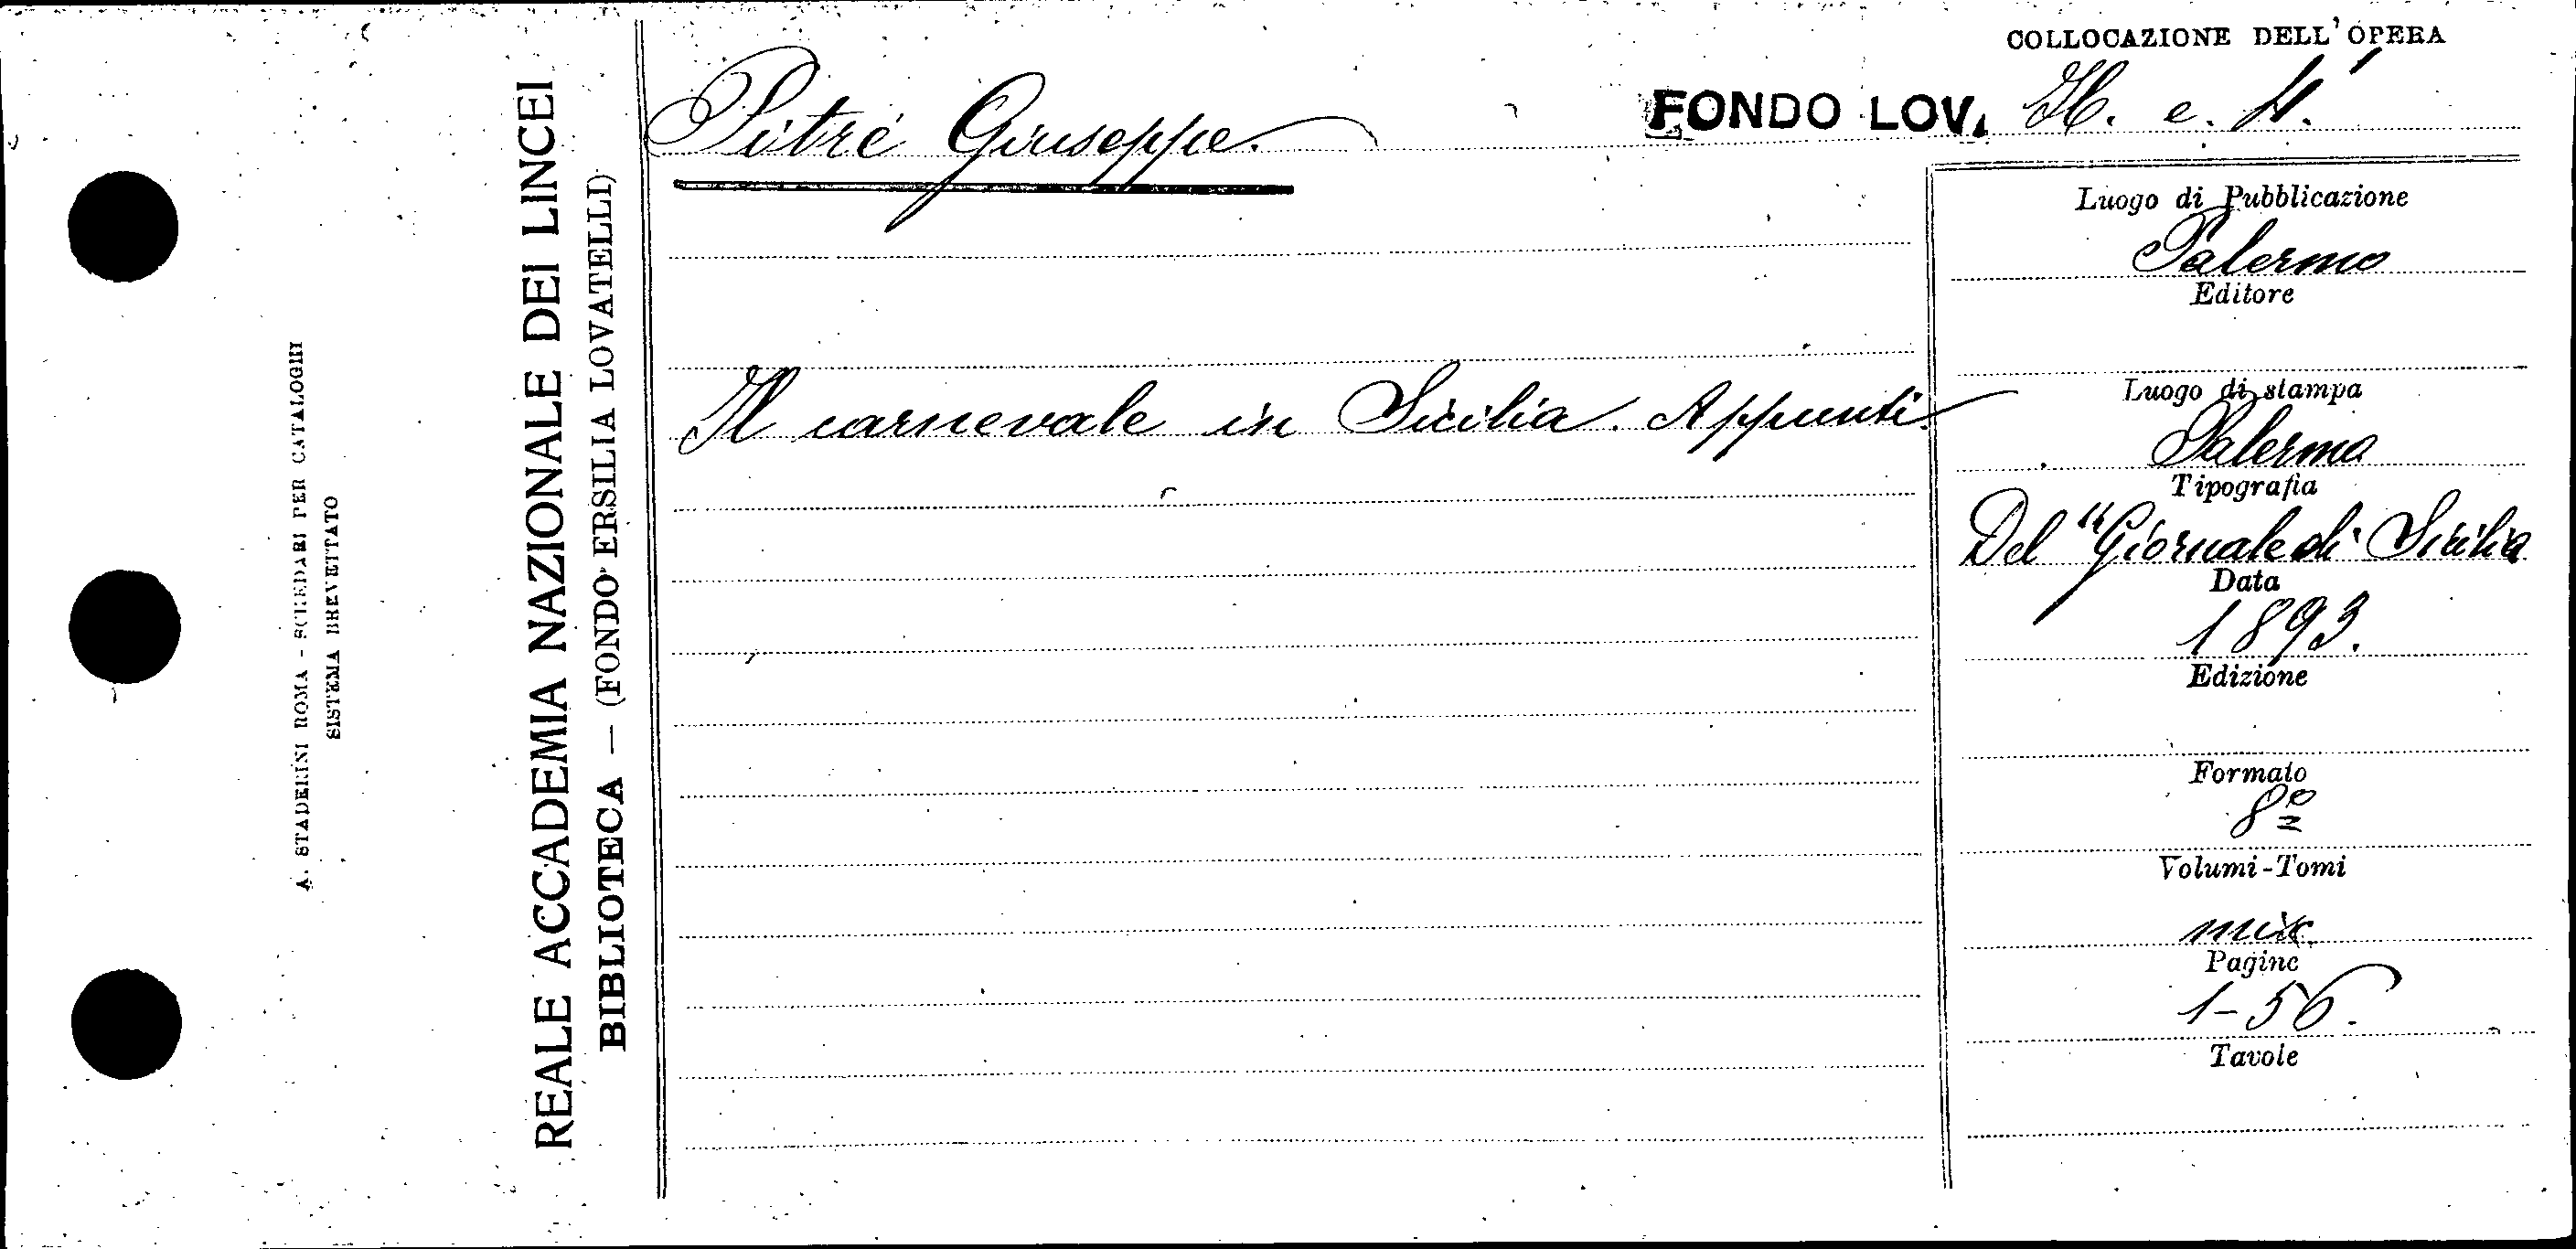 COLLOCAZIONE DELL'OPERA
FONDO LOV. H. e. 4.
Pitrè Giuseppe.
Il carnevale in Sicilia. Appunti.
Luogo di Pubblicazione
Palermo
Editore
Luogo di stampa
Palermo
Tipografia
Del "Giornale di Sicilia
Data
1893.
Edizione
Formato
8º
Volumi-Tomi
Pagine
1-56.
Tavole
REALE ACCADEMIA NAZIONALE DEI LINCEI
BIBLIOTECA — (FONDO ERSILIA LOVATELLI)
A. STADERINI ROMA - SCHEDARI PER CATALOGHI
SISTEMA BREVETTATO